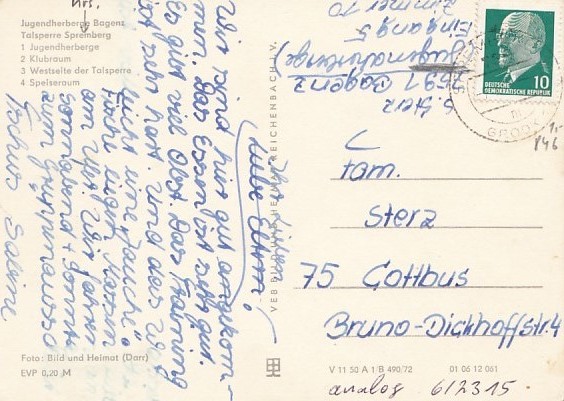 Jugendherberge Bagenz
Talsperre Spremberg
1 Jugendherberge
2 Klubraum
3 Westseite der Talsperre
4 Speiseraum
Ihr Lieben
(Liebe Eltern)!
Wir sind hier gut angekom-
men. Das Essen ist sehr gut.
Es gibt viel Obst. Das Training
ist sehr hart. Und das
nicht eine Jauche.
Finde euch
am Ufer. Wir fahren
Sonnabend + Sonntag
zum
Tschüs Sabine
Foto: Bild und Heimat (Darr)
EVP 0,20 M
VEB BILD UND HEIMAT REICHENBACH I. V.
S. Sterz
7591 Bagenz
(Jugendherberge)
Eingang 5
Zimmer 70
DEUTSCHE
DEMOKRATISCHE REPUBLIK
10
Fam.
Sterz
75 Cottbus
Bruno-Dickhoffstr. 4
V 11 50 A 1 B 490/72 01 06 12 061
analog 6/2315